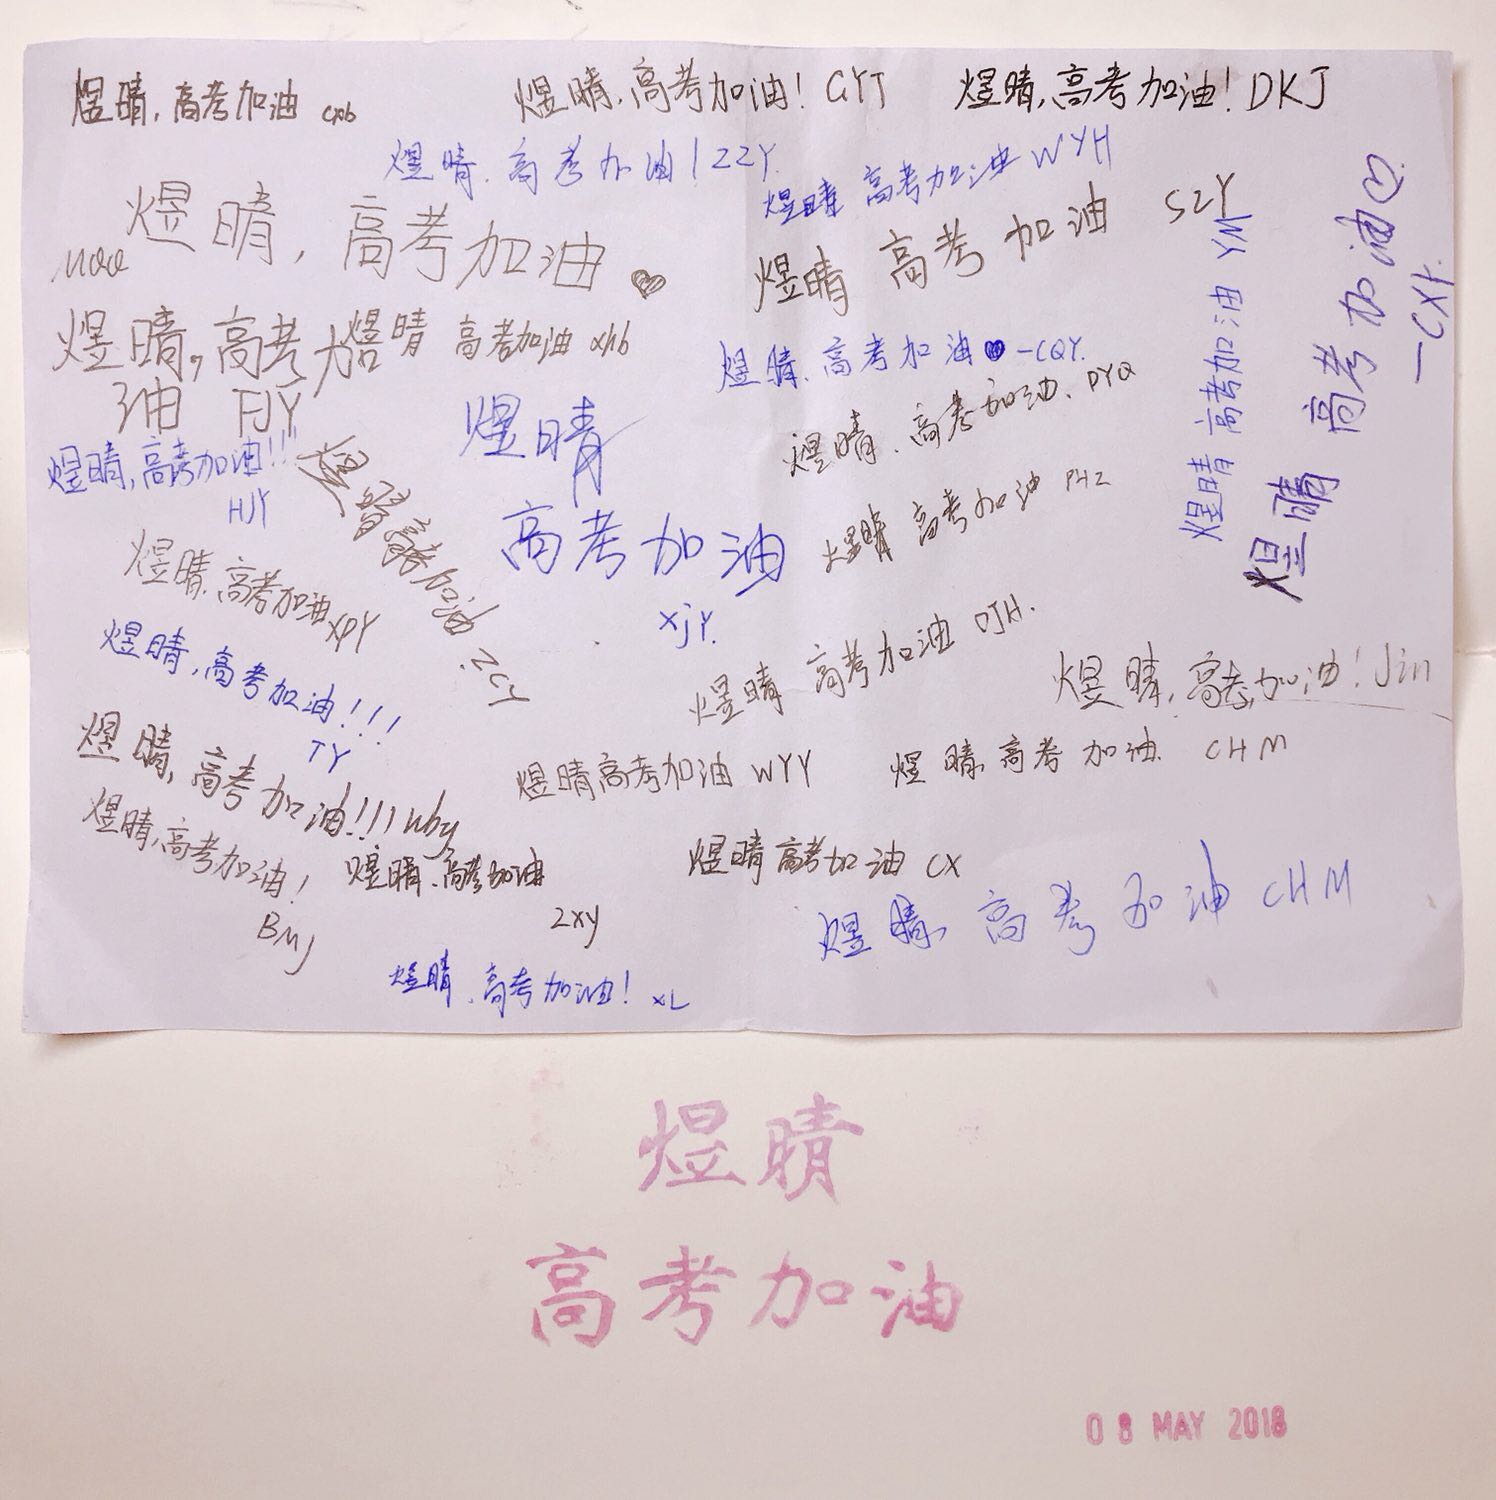 煜晴,高考加油 cxb
煜晴,高考加油! GYJ
煜晴,高考加油! DKJ
煜晴.高考加油!ZZY.
煜晴 高考加油 WYH
煜晴,高考加油
煜晴 高考加油 SZY
煜晴 高考加油 YM
煜晴 高考加油 —CXY.
煜晴,高考加
油 FJY
煜晴 高考加油 xhb
煜晴.高考加油 —CQY.
煜晴.高考加油.PYQ
煜晴
高考加油
xjy.
煜晴,高考加油!!!
HJY
煜晴高考加油.ZCY
煜晴 高考加油 PHZ
煜晴.高考加油 XPY
煜晴,高考加油!!!
TY
煜晴 高考加油 DJH.
煜晴,高考加油!Jin
煜晴,高考加油!!! wby
煜晴高考加油 WYY
煜晴.高考加油. CHM
煜晴,高考加油!
BMJ
煜晴.高考加油
ZXY
煜晴高考加油 CX
煜晴.高考加油 CHM
煜晴.高考加油! XL
煜晴
高考加油
08 MAY 2018